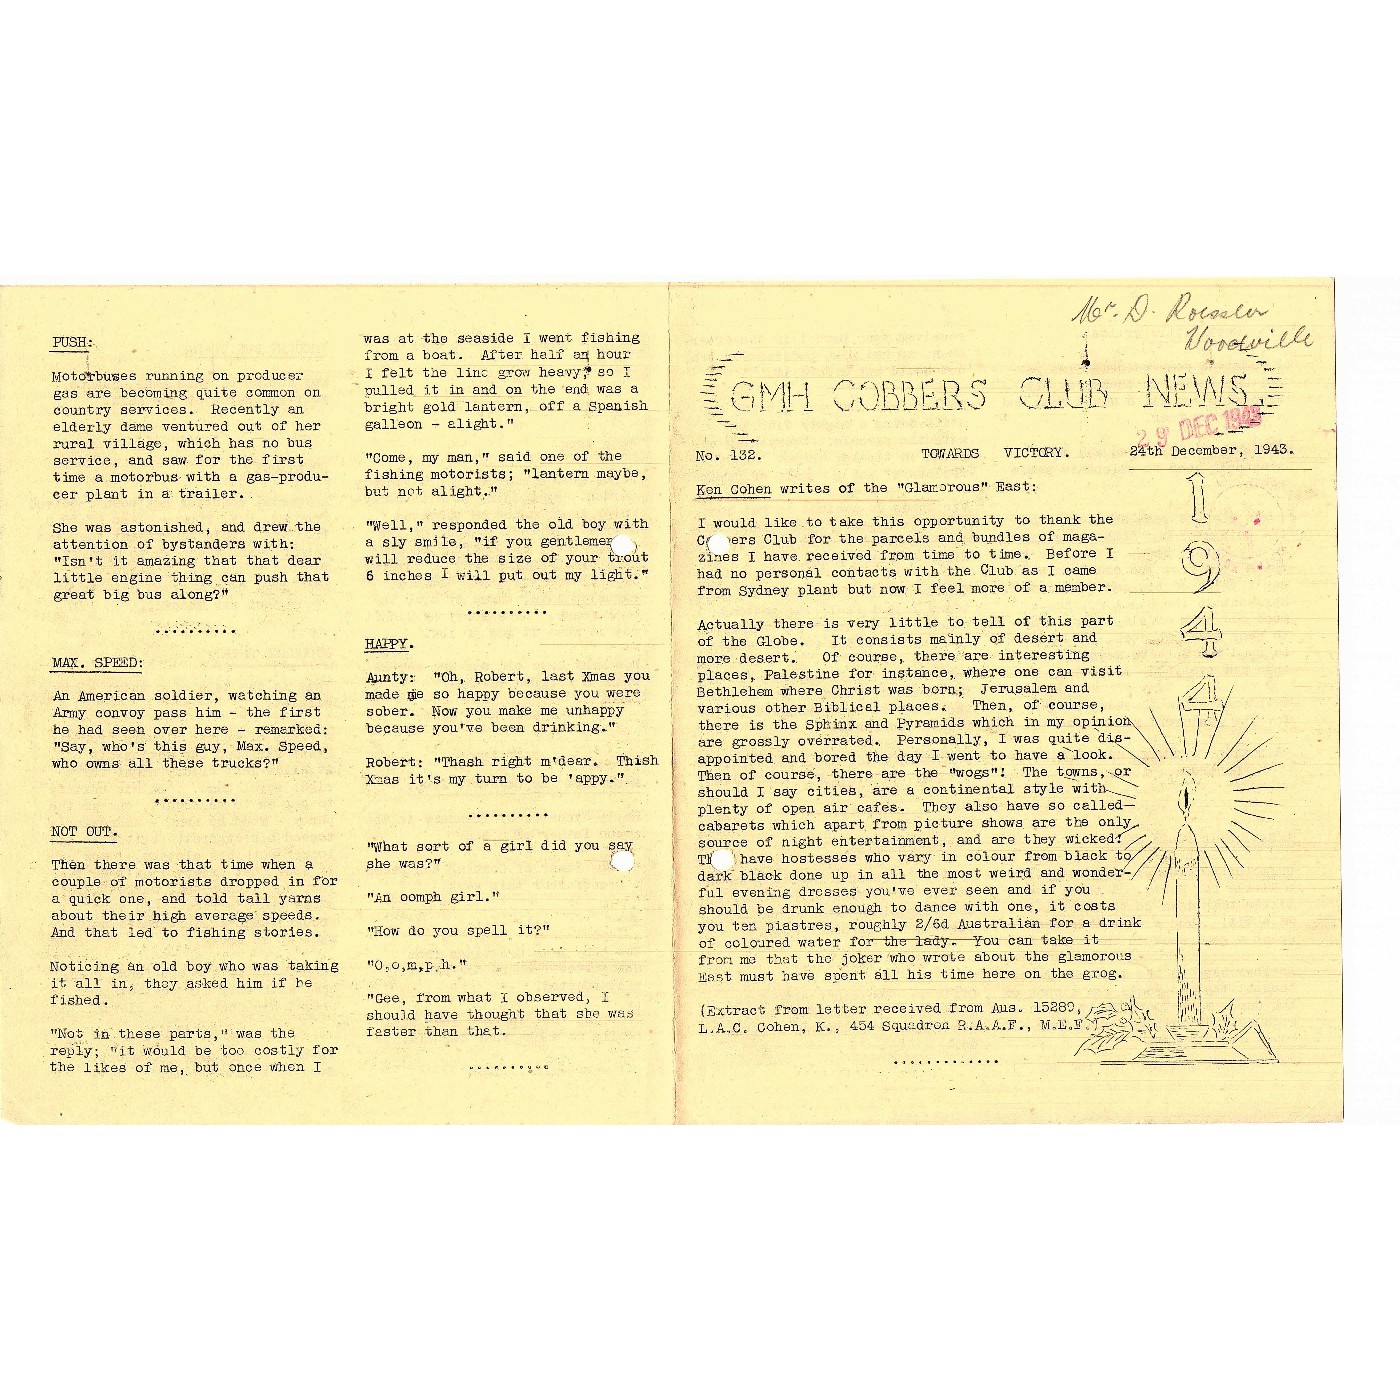 PUSH:
Motorbuses running on producer
gas are becoming quite common on
country services. Recently an
elderly dame ventured out of her
rural village, which has no bus
service, and saw for the first
time a motorbus with a gas-produ-
cer plant in a trailer.
She was astonished, and drew the
attention of bystanders with:
"Isn't it amazing that that dear
little engine thing can push that
great big bus along?"
..........
MAX. SPEED:
An American soldier, watching an
Army convoy pass him - the first
he had seen over here - remarked:
"Say, who's this guy, Max. Speed,
who owns all these trucks?"
..........
NOT OUT.
Then there was that time when a
couple of motorists dropped in for
a quick one, and told tall yarns
about their high average speeds.
And that led to fishing stories.
Noticing an old boy who was taking
it all in, they asked him if he
fished.
"Not in these parts," was the
reply; "it would be too costly for
the likes of me, but once when I
was at the seaside I went fishing
from a boat. After half an hour
I felt the line grow heavy, so I
pulled it in and on the end was a
bright gold lantern, off a Spanish
galleon - alight."
"Come, my man," said one of the
fishing motorists; "lantern maybe,
but not alight."
"Well," responded the old boy with
a sly smile, "if you gentlemen
will reduce the size of your trout
6 inches I will put out my light."
..........
HAPPY.
Aunty: "Oh, Robert, last Xmas you
made me so happy because you were
sober. Now you make me unhappy
because you've been drinking."
Robert: "Thash right m'dear. Thish
Xmas it's my turn to be 'appy."
..........
"What sort of a girl did you say
she was?"
"An oomph girl."
"How do you spell it?"
"O,o,m,p,h."
"Gee, from what I observed, I
should have thought that she was
faster than that.
..........
Mr. D. Roessler
Woodville
GMH COBBERS CLUB NEWS
29 DEC 1943
No. 132. TOWARDS VICTORY. 24th December, 1943.
Ken Cohen writes of the "Glamorous" East:
I would like to take this opportunity to thank the
C ers Club for the parcels and bundles of maga-
zines I have received from time to time. Before I
had no personal contacts with the Club as I came
from Sydney plant but now I feel more of a member.
Actually there is very little to tell of this part
of the Globe. It consists mainly of desert and
more desert. Of course, there are interesting
places, Palestine for instance, where one can visit
Bethlehem where Christ was born; Jerusalem and
various other Biblical places. Then, of course,
there is the Sphinx and Pyramids which in my opinion
are grossly overrated. Personally, I was quite dis-
appointed and bored the day I went to have a look.
Then of course, there are the "wogs"! The towns, or
should I say cities, are a continental style with
plenty of open air cafes. They also have so called
cabarets which apart from picture shows are the only
source of night entertainment, and are they wicked!
Th have hostesses who vary in colour from black to
dark black done up in all the most weird and wonder-
ful evening dresses you've ever seen and if you
should be drunk enough to dance with one, it costs
you ten piastres, roughly 2/6d Australian for a drink
of coloured water for the lady. You can take it
from me that the joker who wrote about the glamorous
East must have spent all his time here on the grog.
(Extract from letter received from Aus. 15289,
L.A.C. Cohen, K., 454 Squadron R.A.A.F., M.E.F.)
.............
1
9
4
4